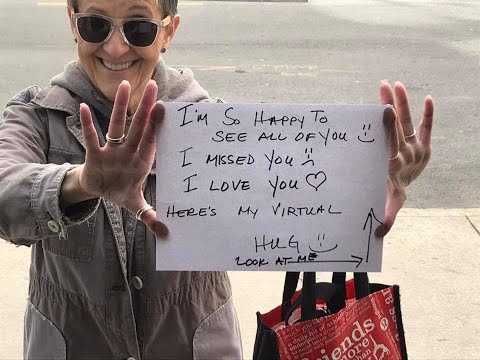 I'm So Happy To
See All of You ☺
I missed You ☹
I Love You ♡
Here's My Virtual
Hug ☺
Look at me
friends
store